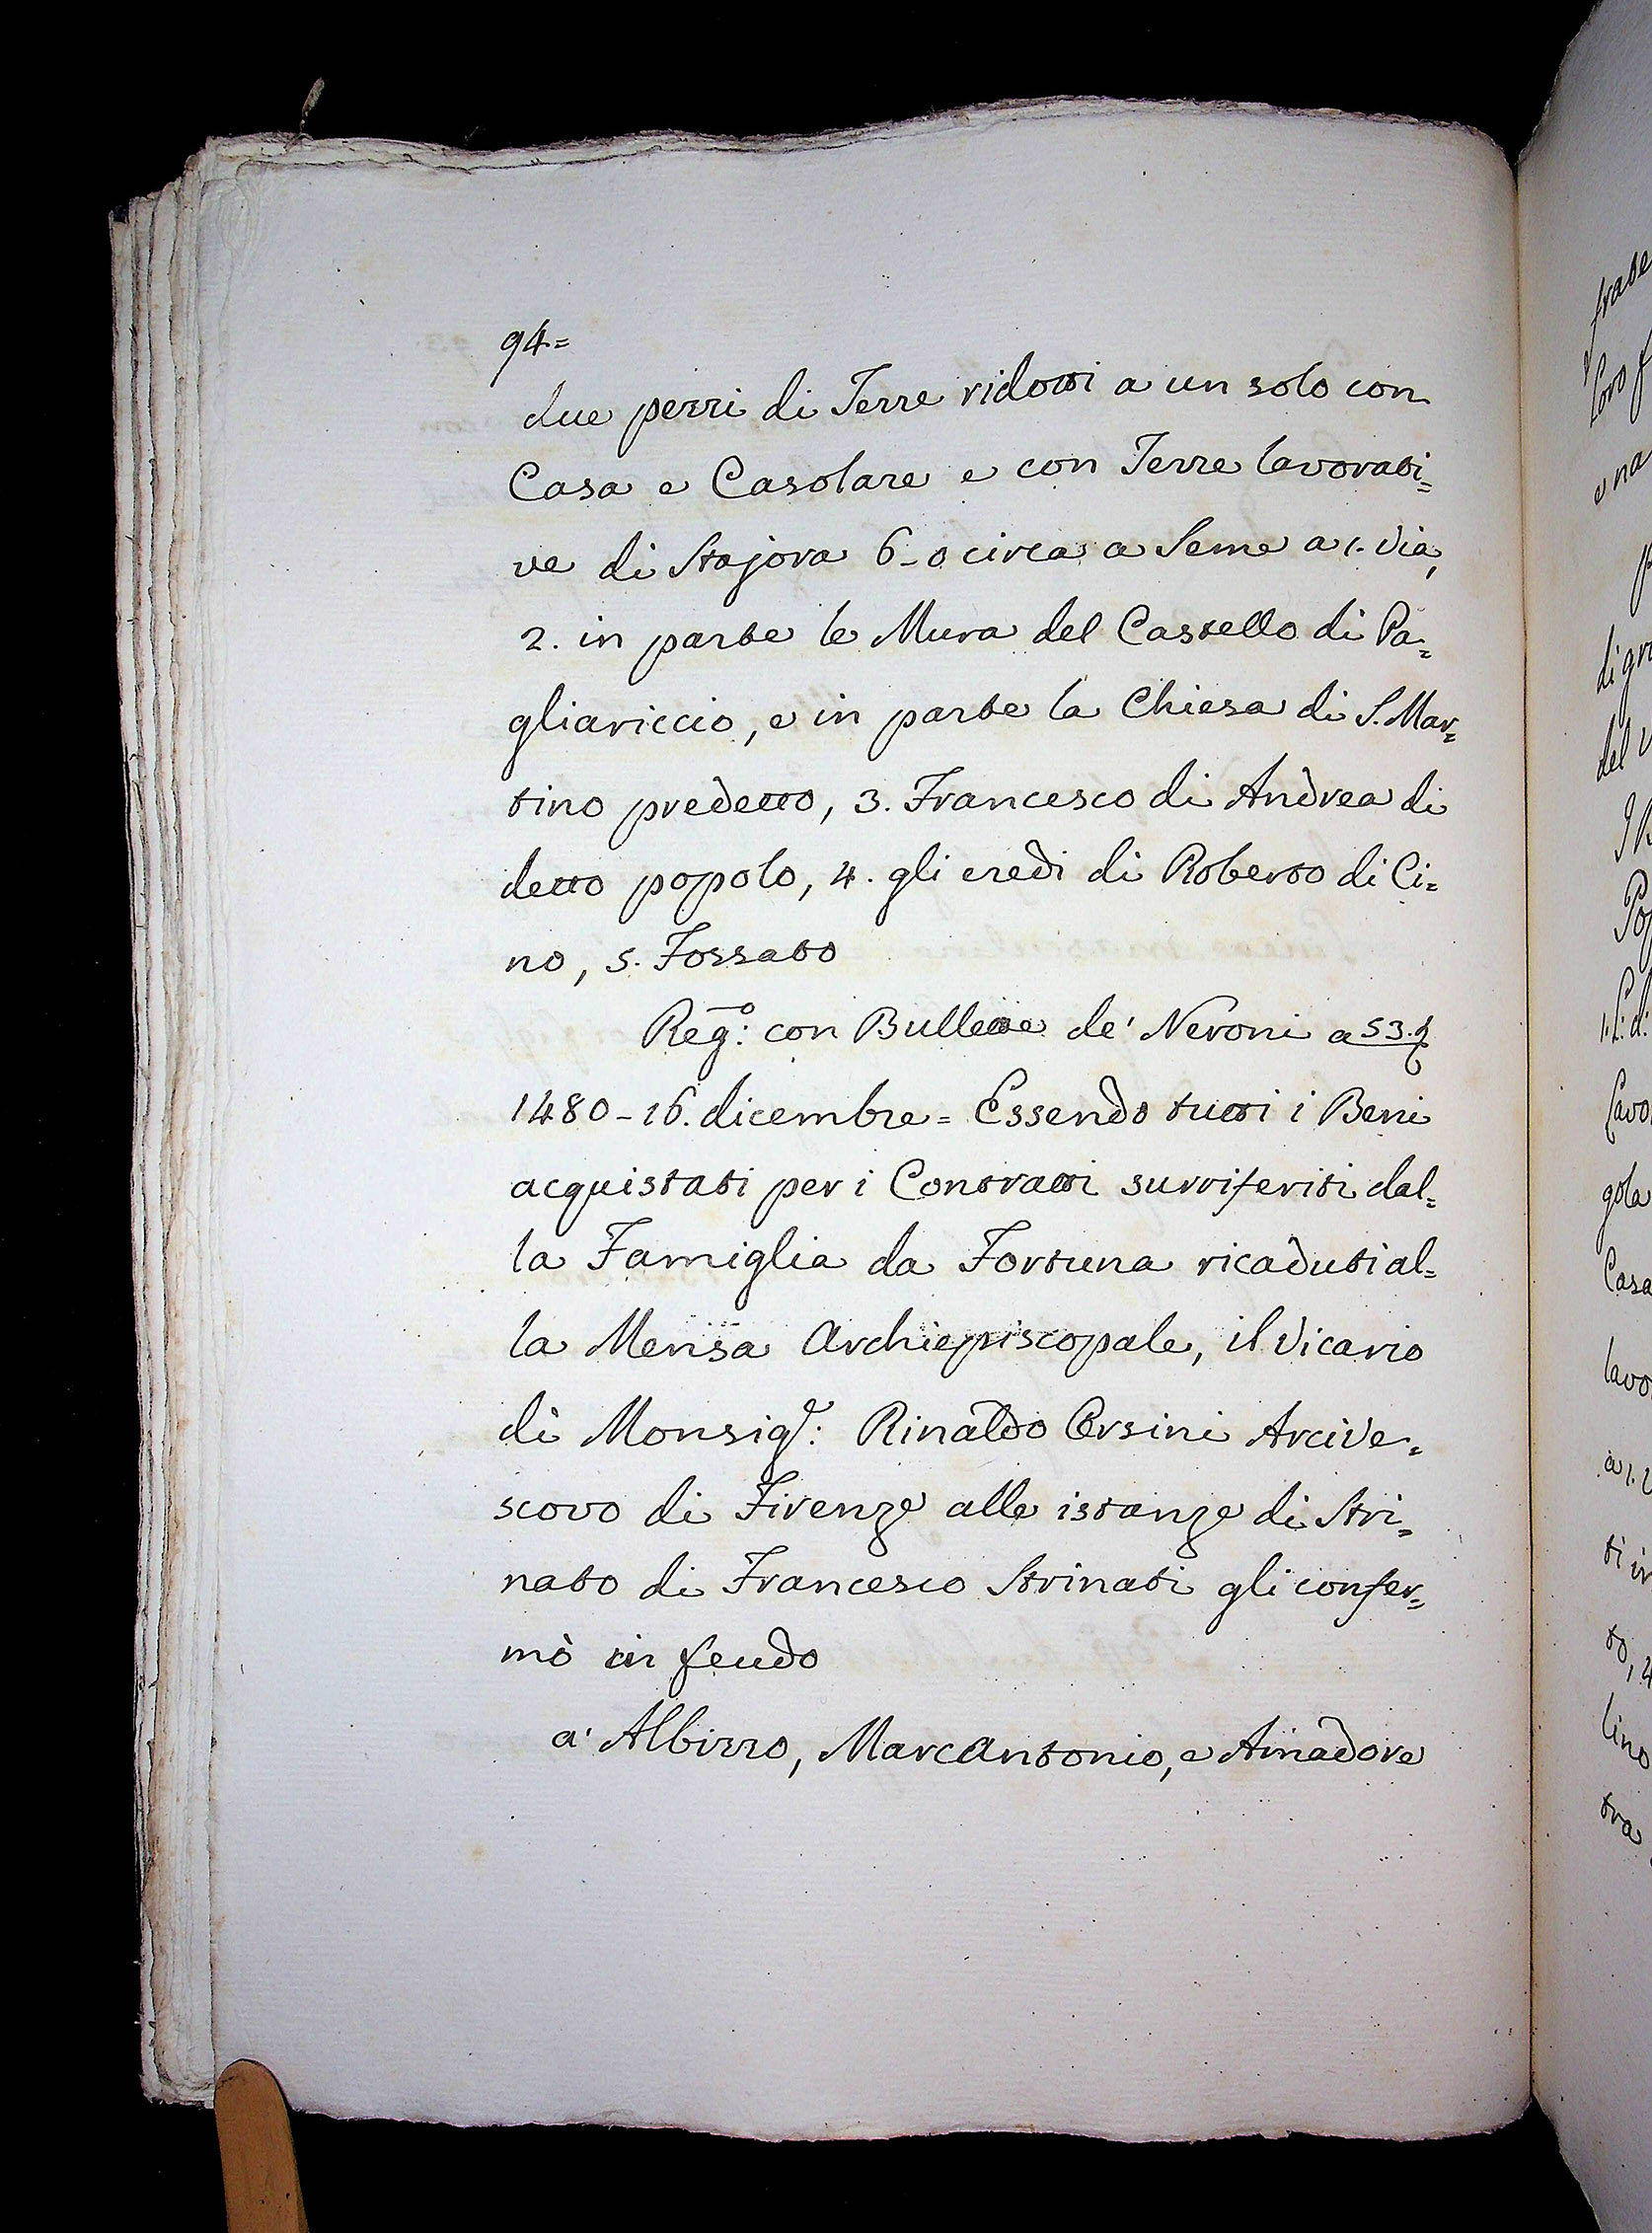 94=
due pezzi di Terre ridotti a un solo con
Casa e Casolare e con Terre lavorati=
ve di Stajora 6-0 circa a Seme a 1. via,
2. in parte le Mura del Castello di Pa=
gliariccio, e in parte la Chiesa di S. Mar=
tino predetto, 3. Francesco di Andrea di
detto popolo, 4. gli eredi di Roberto di Ci=
no, 5. Fossato
Reg:º con Bullette de' Neroni a 53.
1480-16. dicembre = Essendo tutti i Beni
acquistati per i Contratti surriferiti dal=
la Famiglia da Fortuna ricaduti al=
la Mensa Archiepiscopale, il Vicario
di Monsig.: Rinaldo Orsini Arcive=
scovo di Firenze alle istanze di Stri=
nato di Francesco Strinati gli confer=
mò in feudo
a' Albizzo, MarcAntonio, e Amadore
frate
loro f
e na
di gra
del
Pop
Lavo
gola
Casa
lavo
a 1.
ti in
to, 4
lino
tra